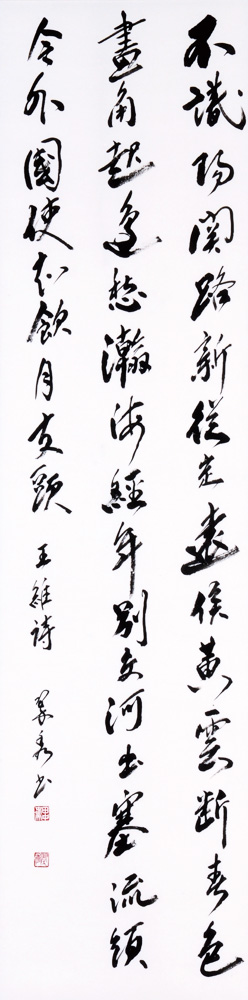 不識陽関路新従定遠侯黄雲断春色
畫角起邊愁瀚海經年別交河出塞流須
令外國使知飲月支頭 王維詩 書